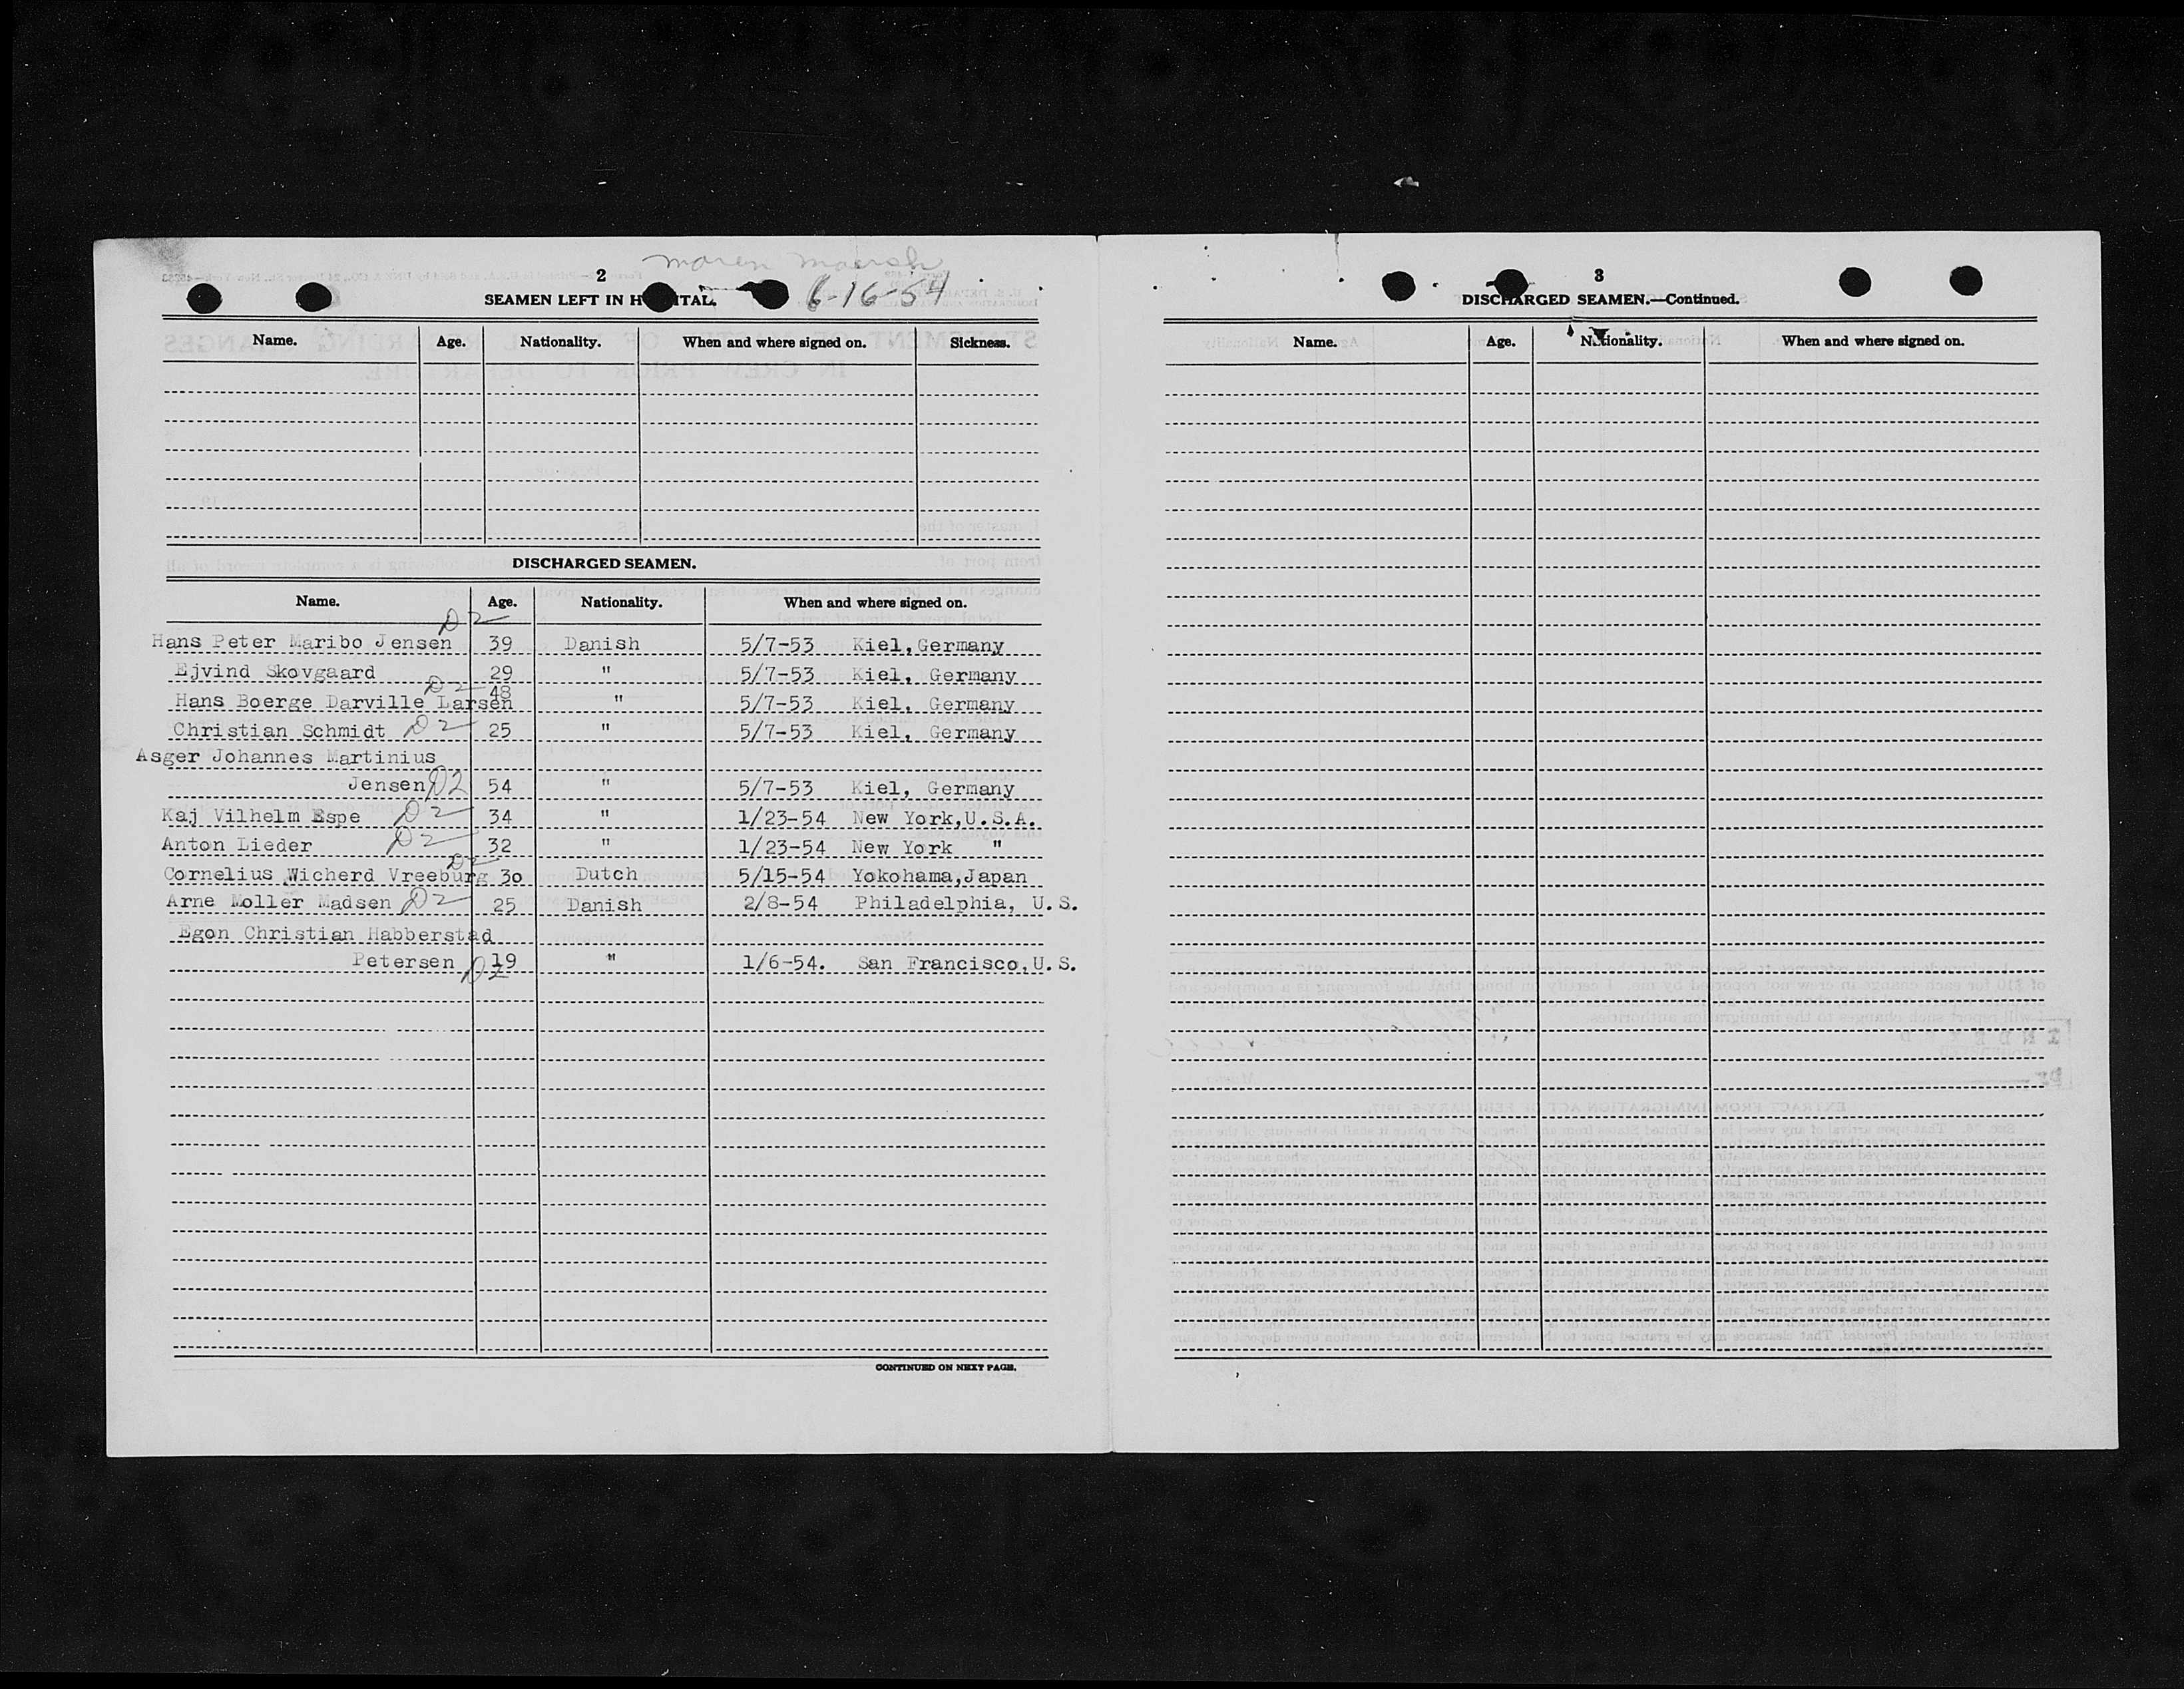 Maren Maersk
2
SEAMEN LEFT IN H ITAL. 6-16-54
Name. Age. Nationality. When and where signed on. Sickness.
DISCHARGED SEAMEN.
Name. Age. Nationality. When and where signed on.
D2
Hans Peter Maribo Jensen 39 Danish 5/7-53 Kiel, Germany
Ejvind Skovgaard 29 " 5/7-53 Kiel, Germany
D2 48
Hans Boerge Darville Larsen " 5/7-53 Kiel, Germany
Christian Schmidt D2 25 " 5/7-53 Kiel, Germany
Asger Johannes Martinius
Jensen D2 54 " 5/7-53 Kiel, Germany
Kaj Vilhelm Espe D2 34 " 1/23-54 New York,U.S.A.
Anton Lieder D2 32 " 1/23-54 New York "
D2
Cornelius Wicherd Vreeburg 30 Dutch 5/15-54 Yokohama,Japan
Arne Moller Madsen D2 25 Danish 2/8-54 Philadelphia, U.S.
Egon Christian Habberstad
Petersen D2 19 " 1/6-54. San Francisco,U.S.
CONTINUED ON NEXT PAGE.
3
DISCHARGED SEAMEN.—Continued.
Name. Age. Nationality. When and where signed on.